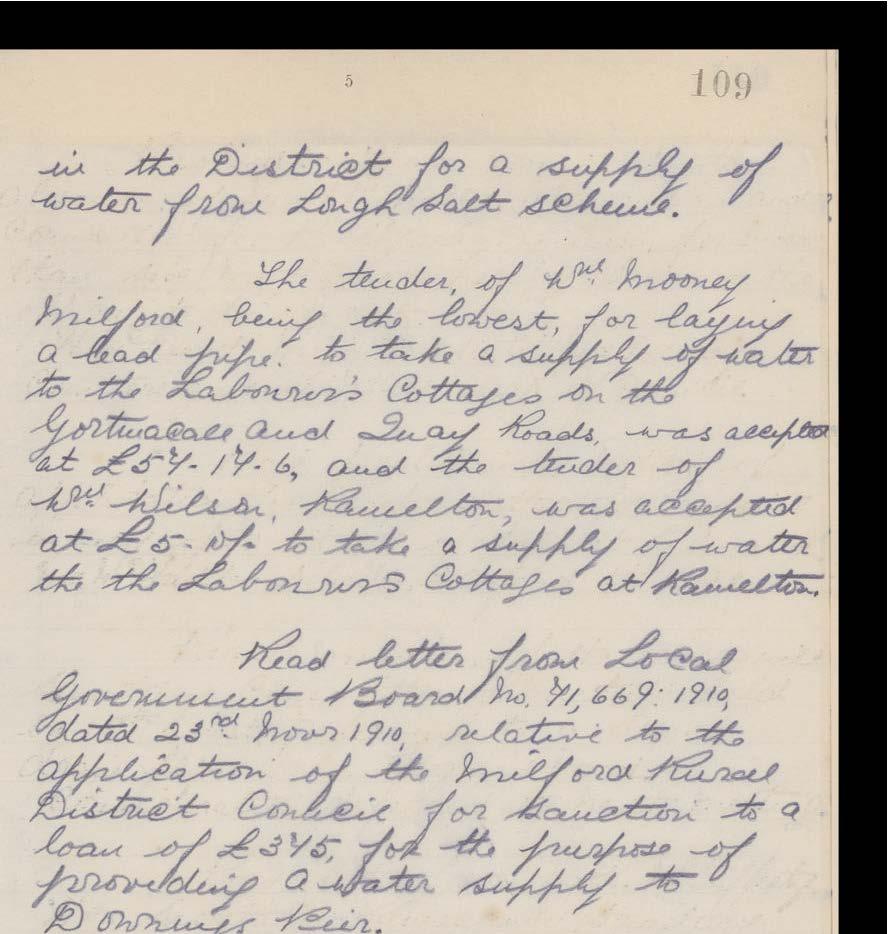 5
109
in the District for a supply of
water from Lough Salt scheme.
The tender, of Wm. Mooney
Milford, being the lowest, for laying
a lead pipe. to take a supply of water
to the Labourer's Cottages on the
Gortmacall and Quay Roads, was accepted
at £57-17-6, and the tender of
Wm. Wilson, Ramelton, was accepted
at £5-10/- to take a supply of water
the the Labourers Cottages at Ramelton.
Read letter from Local
Government Board No. 71,669: 1910,
dated 23rd. Novr 1910, relative to the
application of the Milford Rural
District Council for sanction to a
loan of £375, for the purpose of
providing a water supply to
Downings Pier.